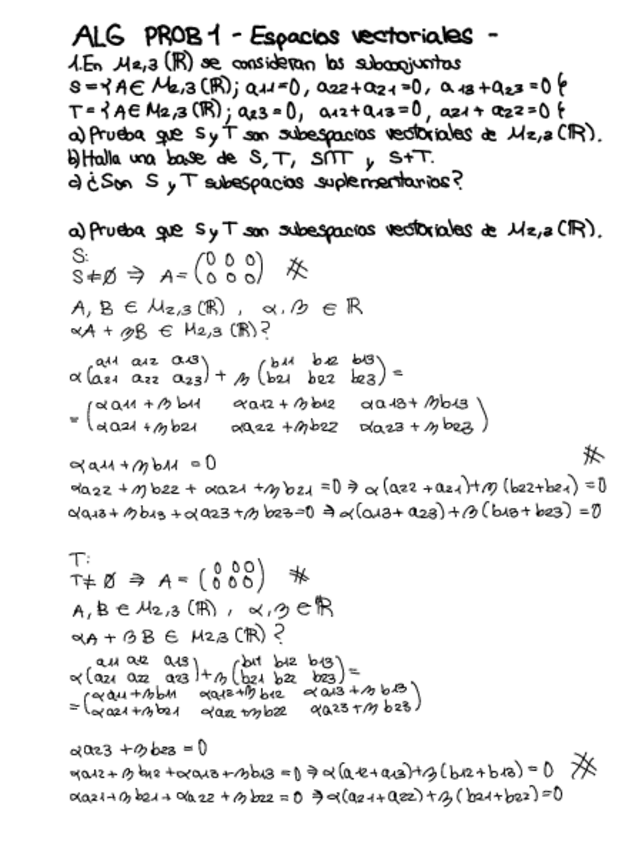 ALG PROB 1 - Espacios vectoriales -
1. En M2,3 (ℝ) se consideran los subconjuntos
S = { A ∈ M2,3 (ℝ); a11=0, a22+a21=0, a13+a23=0 }
T = { A ∈ M2,3 (ℝ); a23=0, a12+a13=0, a21+a22=0 }
a) Prueba que S y T son subespacios vectoriales de M2,3 (ℝ).
b) Halla una base de S, T, S∩T y S+T.
c) ¿Son S y T subespacios suplementarios?
a) Prueba que S y T son subespacios vectoriales de M2,3 (ℝ).
S:
S≠Ø ⇒ A = (0 0 0
0 0 0) #
A, B ∈ M2,3 (ℝ), α, β ∈ ℝ
αA + βB ∈ M2,3 (ℝ)?
α (a11 a12 a13
a21 a22 a23) + β (b11 b12 b13
b21 b22 b23) =
= (αa11 + βb11 αa12 + βb12 αa13 + βb13
αa21 + βb21 αa22 + βb22 αa23 + βb23)
αa11 + βb11 = 0 #
αa22 + βb22 + αa21 + βb21 = 0 ⇒ α(a22 + a21) + β(b22+b21) = 0
αa13 + βb13 + αa23 + βb23 = 0 ⇒ α(a13 + a23) + β(b13 + b23) = 0
T:
T≠Ø ⇒ A = (0 0 0
0 0 0) #
A, B ∈ M2,3 (ℝ), α, β ∈ ℝ
αA + βB ∈ M2,3 (ℝ)?
α (a11 a12 a13
a21 a22 a23) + β (b11 b12 b13
b21 b22 b23) =
= (αa11 + βb11 αa12 + βb12 αa13 + βb13
αa21 + βb21 αa22 + βb22 αa23 + βb23)
αa23 + βb23 = 0
αa12 + βb12 + αa13 + βb13 = 0 ⇒ α(a12 + a13) + β(b12 + b13) = 0 #
αa21 + βb21 + αa22 + βb22 = 0 ⇒ α(a21 + a22) + β(b21 + b22) = 0